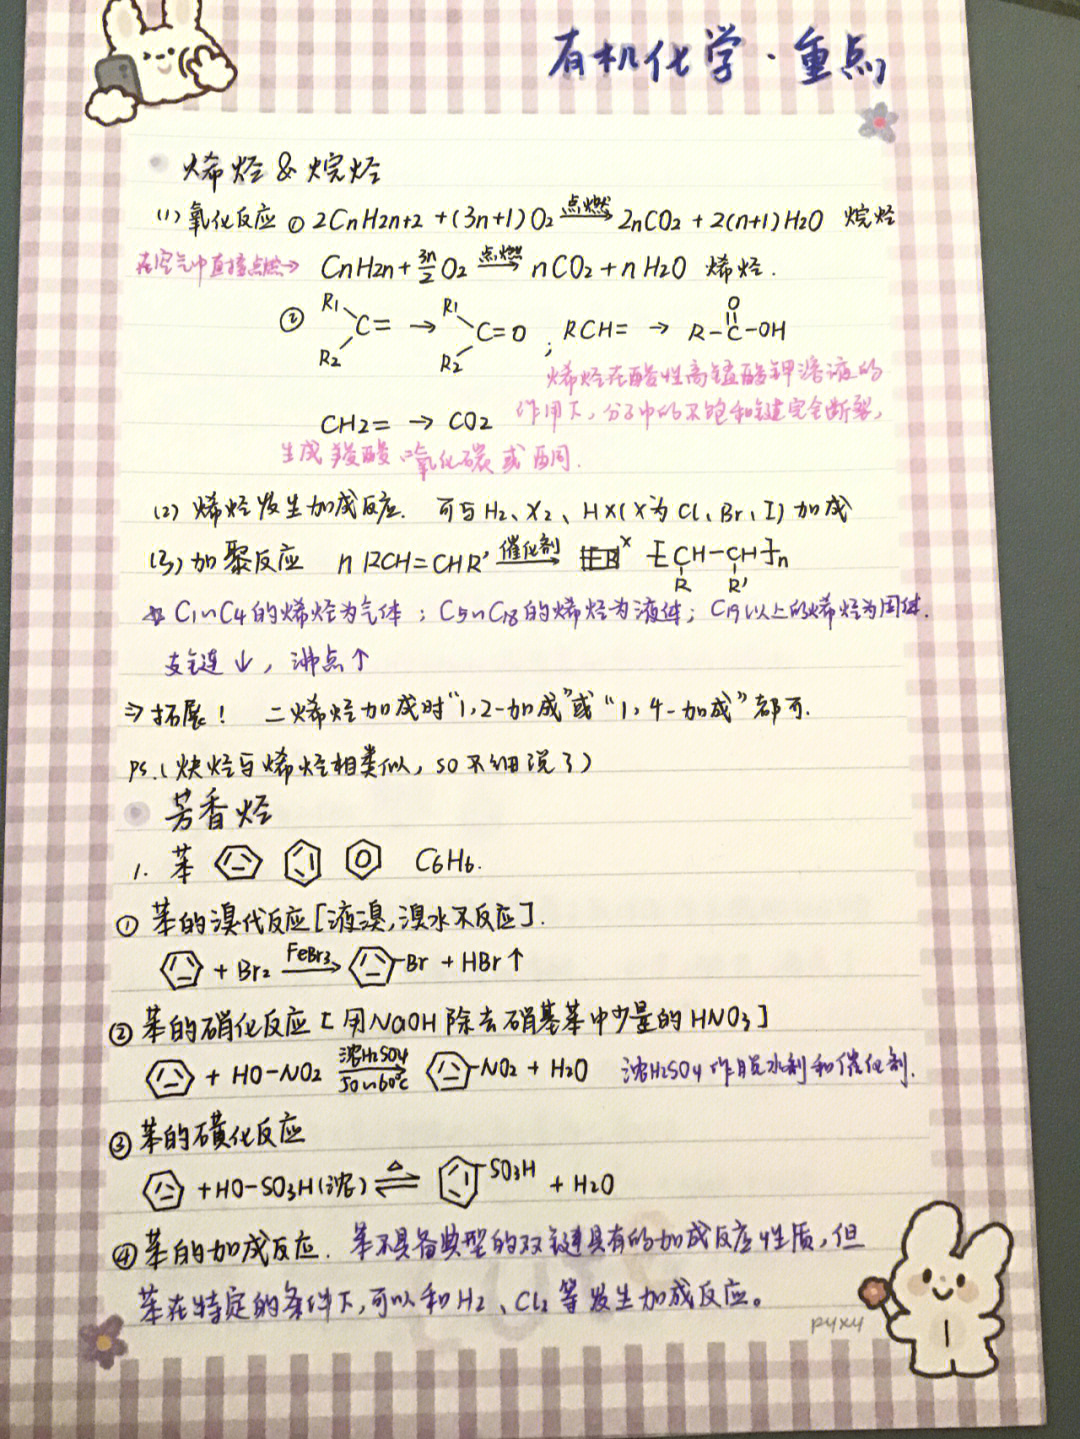 有机化学·重点
烯烃&烷烃
(1)氧化反应 ① 2CnH2n+2 +(3n+1)O2 点燃→ 2nCO2 + 2(n+1)H2O 烷烃
在空气中直接点燃→ CnH2n + 3n/2 O2 点燃→ nCO2 + nH2O 烯烃.
② R1 R2 C= → R1 R2 C=O ; RCH= → R-C(=O)-OH
烯烃在酸性高锰酸钾溶液的
CH2= → CO2 作用下,分子中的不饱和键完全断裂,
生成羧酸、二氧化碳或酮.
(2)烯烃发生加成反应. 可与H2、X2、HX(X为Cl、Br、I)加成
(3)加聚反应 n RCH=CHR' 催化剂→ [CH(R)-CH(R')]n
C1~C4的烯烃为气体;C5~C18的烯烃为液体;C19以上的烯烃为固体.
支链↓,沸点↑
⇒拓展! 二烯烃加成时“1,2-加成”或“1,4-加成”都可.
PS.(炔烃与烯烃相类似,so不细说了)
芳香烃
1. 苯 C6H6.
① 苯的溴代反应[液溴,溴水不反应].
+ Br2 FeBr3→ -Br + HBr↑
② 苯的硝化反应[用NaOH除去硝基苯中少量的HNO3]
+ HO-NO2 浓H2SO4 50~60℃→ -NO2 + H2O 浓H2SO4作脱水剂和催化剂.
③ 苯的磺化反应
+HO-SO3H(浓) △⇌ -SO3H + H2O
④ 苯的加成反应. 苯不具备典型的双键具有的加成反应性质,但
苯在特定的条件下,可以和H2、Cl2等发生加成反应。
pyxy